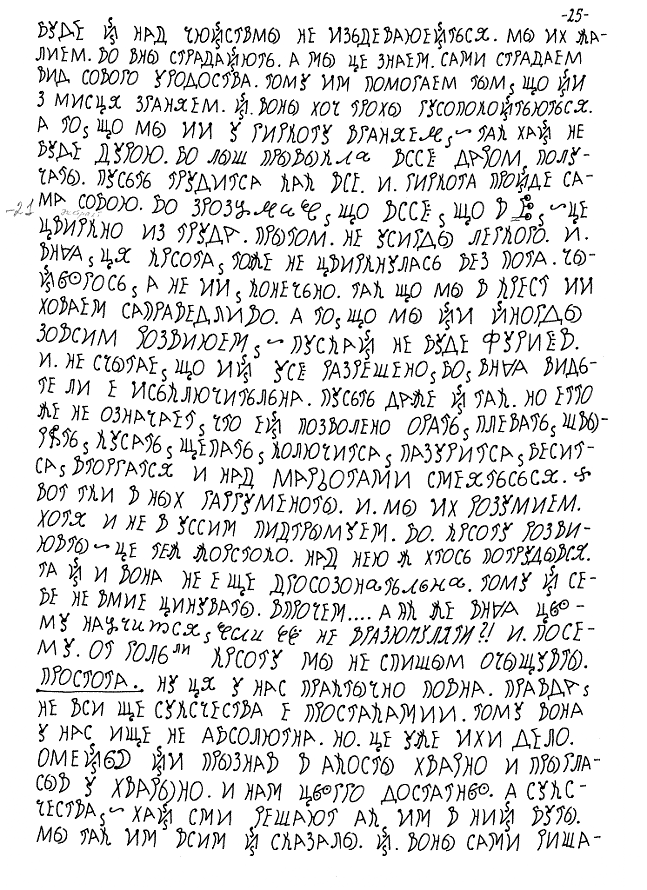 -25-
БУДЕ Й НАД ЧЮЙСТВМЫ НЕ ИЗЬДЕВАЮЕЙТЬСЯ. МЫ ИХ ЖА-
ЛИЕМ. БО ВНЫ СТРАДАЙЮТЬ. А МЫ ЦЕ ЗНАЕМ. САМИ СТРАДАЕМ
ВИД СОБОГО УРОДОСТВА. ТОМУ ИМ ПОМОГАЕМ ТЫМ, ЩО ЙИ
З МИСЦЯ ЗГАНЯЕМ. Й. ВОНЫ ХОЧ ТРОХЫ ГУСОПОКОЙТЬЮТЬСЯ.
А ТО, ЩО МЫ ИИ У ГИРКОТУ ВГАНЯЕМ, ~ ТАК ХАЙ НЕ
БУДЕ ДУРОЮ. БО ЛЫШ ПРЫВЫКЛА ВССЕ ДАРОМ ПОЛУ-
ЧАТЫ. ПУСЬТЬ ТРУДИТСА КАК ВСЕ. И. ГИРКОТА ПРОЙДЕ СА-
-21 МА СОБОЮ. БО ЗРОЗУМИЕ, ЩО ВССЕ, ЩО В ~ ЦЕ
ЦВИРКНО ИЗ ТРУДА. ПРЫТОМ. НЕ УСИГДЫ ЛЕГКОГО. И.
ВНАА, ЦЯ КРСОТА, ТОЖЕ НЕ ЦВИРКНУЛАСЬ БЕЗ ПОТА. ЧЫ-
ЙВОГОСЬ, А НЕ ИИ, КОНЕЧЬНО. ТАК ЩО МЫ В КРЕСТ ИИ
ХОВАЕМ САПРАВЕДЛИВО. А ТО, ЩО МЫ ЙИ ЙНОГДЫ
ЗОВСИМ РОЗВИЮЕМ, ~ ПУСКАЙ НЕ БУДЕ ФУРИЕВ.
И. НЕ СЧЫТАЕ, ЩО ИЙ УСЕ РАЗРЕШЕНО, БО, ВНАА ВИДЬ-
ТЕ ЛИ Е ИСЬКЛЮЧИТЬЛЬНА. ПУСЬТЬ ДАЖЕ Й ТАК. НО ЕТТО
ЖЕ НЕ ОЗНАЧАЕТ, ЧТО ЕЙ ПОЗВОЛЕНО ОРАТЬ, ПЛЕВАТЬ, ШВЫ-
РЯТЬ, КУСАТЬ, ЩЕПАТЬ, КОЛЮЧИТСА, ПАЗУРИТСА, БЕСИТ-
СА, ВТОРГАТСЯ И НАД МАРЬОТАМИ СМЕЯТЬСЬСЯ.
ВОТ ТКИ В НЫХ ГАРГУМЕНОТЫ. И. МЫ ИХ РОЗУМИЕМ.
ХОТЯ И НЕ В УССИМ ПИДТРЫМУЕМ. БО. КРСОТУ РОЗВИ-
ЮВТЫ ~ ЦЕ ТЕЖ ЖОРСТОКО. НАД НЕЮ Ж ХТОСЬ ПОТРУДЫВСЯ.
ТА Й И ВОНА НЕ Е ЩЕ ДГОСОЗОНАТЬЛЬНА. ТОМУ Й СЕ-
БЕ НЕ ВМИЕ ЦИНУВАТЫ. ВПРОЧЕМ.... А ЯК ЖЕ ВНАА ЦВО-
МУ НАУЧИТСЯ, ЕСЛИ ЕЕ НЕ ВРАЗЮМУЛЯТИ?! И. ПОСЕ-
МУ. ОТ ГОЛЬЛИ КРСОТУ МЫ НЕ СПИШЫМ ОЧЫЩУВТЫ.
ПРОСТОТА. НУ ЦЯ У НАС ПРАКТЫЧНО ПОВНА. ПРАВДА,
НЕ ВСИ ЩЕ СУКСЧЕСТВА Е ПРОСТАКАМИИ. ТОМУ ВОНА
У НАС ИЩЕ НЕ АБСОЛЮТНА. НО. ЦЕ УЖЕ ИХИ ДЕЛО.
ОМЕЙБД ЙИ ПРЫЗНАВ В АКОСТЫ ХВАРНО И ПРЫГЛА-
СЫВ У ХВАРЫНО. И НАМ ЦВОГГО ДОСТАТНВО. А СУКС-
ЧЕСТВА, ~ ХАЙ СМИ РЕШАЮТ АК ИМ В НИЙ БУТЫ.
МЫ ТАК ИМ ВСИМ Й СКАЗАЛЫ. Й. ВОНЫ САМИ РИША-